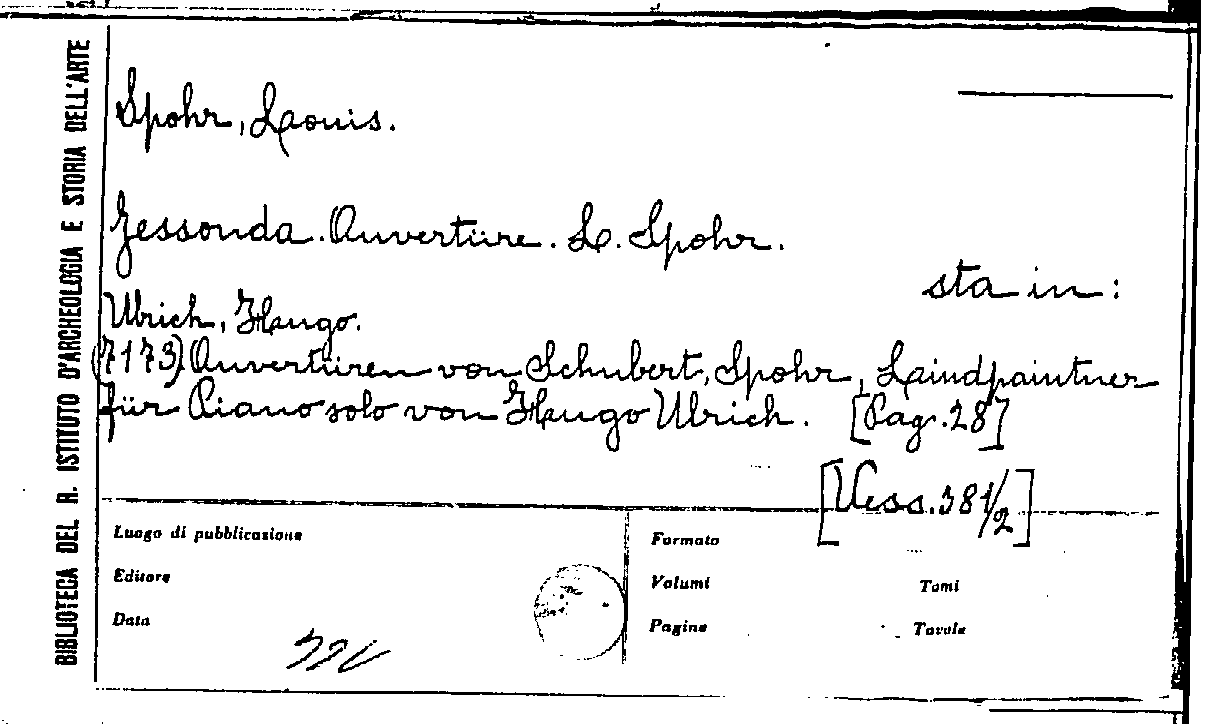 BIBLIOTECA DEL R. ISTITUTO D'ARCHEOLOGIA E STORIA DELL'ARTE
Spohr, Louis.
Jessonda. Ouvertüre. L. Spohr.
sta in:
Ulrich, Hugo.
(7173) Ouvertüren von Schubert, Spohr, Laindpaintner
für Piano solo von Hugo Ulrich. [Pag. 28]
[Vess. 381/2]
Luogo di pubblicazione
Editore
Data
Formato
Volumi
Tomi
Pagine
Tavole